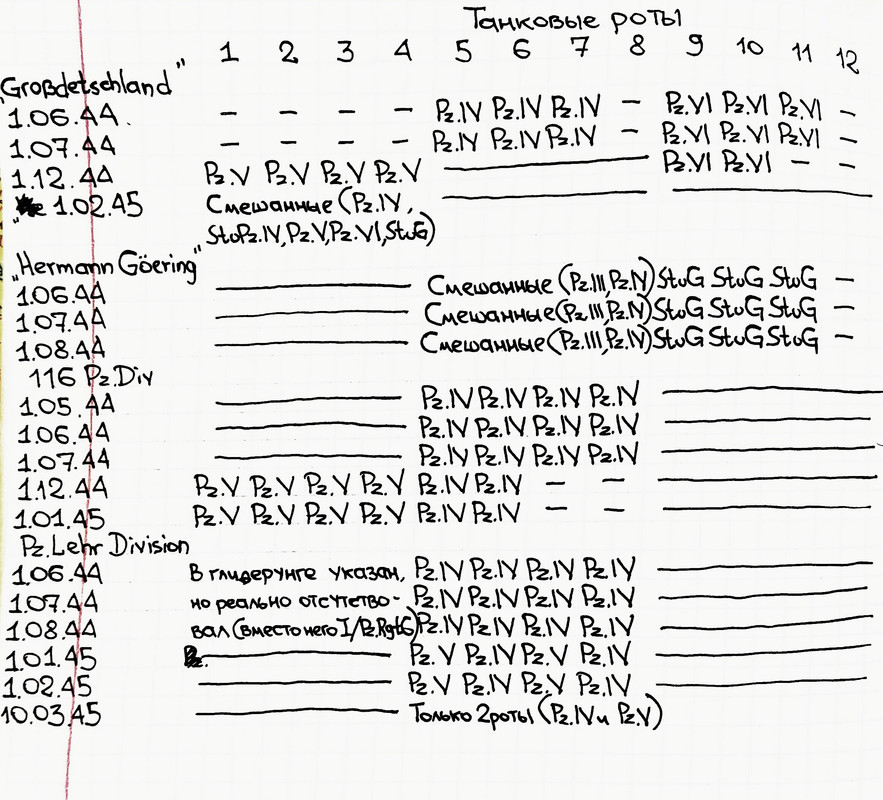 Танковые роты
1 2 3 4 5 6 7 8 9 10 11 12
„Großdetschland"
1.06.44. – – – – Pz.IV Pz.IV Pz.IV – Pz.VI Pz.VI Pz.VI –
1.07.44 – – – – Pz.IV Pz.IV Pz.IV – Pz.VI Pz.VI Pz.VI –
1.12.44 Pz.V Pz.V Pz.V Pz.V ——— Pz.VI Pz.VI – –
1.02.45 Смешанные (Pz.IV, ——— ———
StuPz.IV, Pz.V, Pz.VI, StuG)
„Hermann Göering"
1.06.44 ——— Смешанные (Pz.III, Pz.IV) StuG StuG StuG –
1.07.44 ——— Смешанные (Pz.III, Pz.IV) StuG StuG StuG –
1.08.44 ——— Смешанные (Pz.III, Pz.IV) StuG StuG StuG –
116 Pz.Div
1.05.44 ——— Pz.IV Pz.IV Pz.IV Pz.IV ———
1.06.44 ——— Pz.IV Pz.IV Pz.IV Pz.IV ———
1.07.44 ——— Pz.IV Pz.IV Pz.IV Pz.IV ———
1.12.44 Pz.V Pz.V Pz.V Pz.V Pz.IV Pz.IV – – ———
1.01.45 Pz.V Pz.V Pz.V Pz.V Pz.IV Pz.IV – – ———
Pz.Lehr Division
1.06.44 В глидерунге указан, Pz.IV Pz.IV Pz.IV Pz.IV ———
1.07.44 но реально отсутство- Pz.IV Pz.IV Pz.IV Pz.IV ———
1.08.44 вал (вместо него I/Pz.RgtG) Pz.IV Pz.IV Pz.IV Pz.IV ———
1.01.45 ——— Pz.V Pz.IV Pz.V Pz.IV ———
1.02.45 ——— Pz.V Pz.IV Pz.V Pz.IV ———
10.03.45 ——— Только 2 роты (Pz.IV и Pz.V)